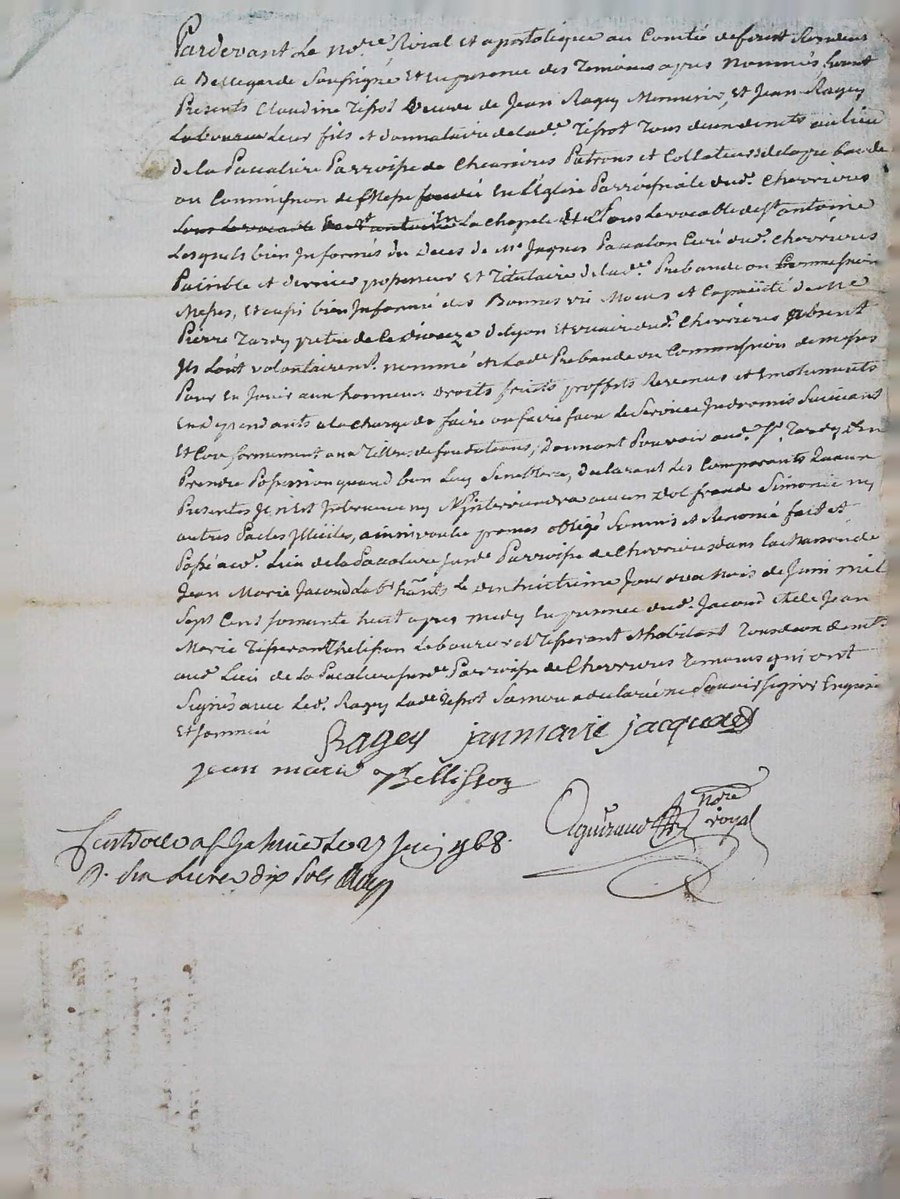 Pardevant Le no.re Roial et apostolique au Comté de forest Residant
a Bellegarde Soussigné Et en presence des Temoins apres nommés furent
Presents Claudine Tissot veuve de Jean Ragey Menuisier, et Jean Ragey
Laboureur Leur fils et donnataire de lad.e Tissot Tous deux demts au lieu
de la Pacaliere Parroisse de Chevrieres Patrons et Collateurs de la prebande
ou Commission de Messe fondée En l'Eglise Parroissiale dud. Chevrieres
Sous Le vocable de st antoine En La Chapele Et Sous Le vocable de st antoine
Lesquels bien Informés du Deces de Mr Jaques Pacalon Curé dud. Chevrieres
Paisible et dernier possesseur Et Titulaire de lad.e Prebande ou Commission
Messes, Et aussi bien Informé des Bonnes vie Moeurs et Capacité de Me
Pierre Tardy pretre de Ce Dioceze de Lyon Et vicaire dud. Chevrieres absent
Ils L'ont volontairemt. nommé et a Lade Prebande ou Commission de messes
Pour En Jouir aux honneurs Droits fruits proffits Revenus et Emoluments
En dependants a la Charge de faire ou faire faire Le Service
Et Conformement aux Titres de fondations, Donnant Pouvoir aud. Sr. Tardy d'En
Prendre Possession quand bon Luy Semblera, declarant Les Comparants qu'aux
Presentes Il n'Est Intervenu ny N'interviendra aucun dol fraude Simonie ny
autres Pactes Illicites, ainsi voulu promes obligé Soumis et Renoncé fait et
Passé aud. Lieu de la Pacaliere susde Parroisse de Chevrieres dans la maison de
Jean Marie Jacoud Labr. hants Le dix huictieme Jour du Mois de Juin mil
Sept Cent soixante huit apres midy En presence dud. Jacoud et de Jean
Marie Laboureur et habitant Tous deux demts.
aud. Lieu de la Pacaliere susde. Parroisse de Chevrieres Temoins qui ont
Signés avec Led. Ragey Lade Tissot a declaré ne Scavoir signer Enquise
Et Sommée
Ragey jan marie jacquod
jean marie
nore royal
Controllé a St Galmier Le 27 Juin 1768.
R. Livre dix Sols